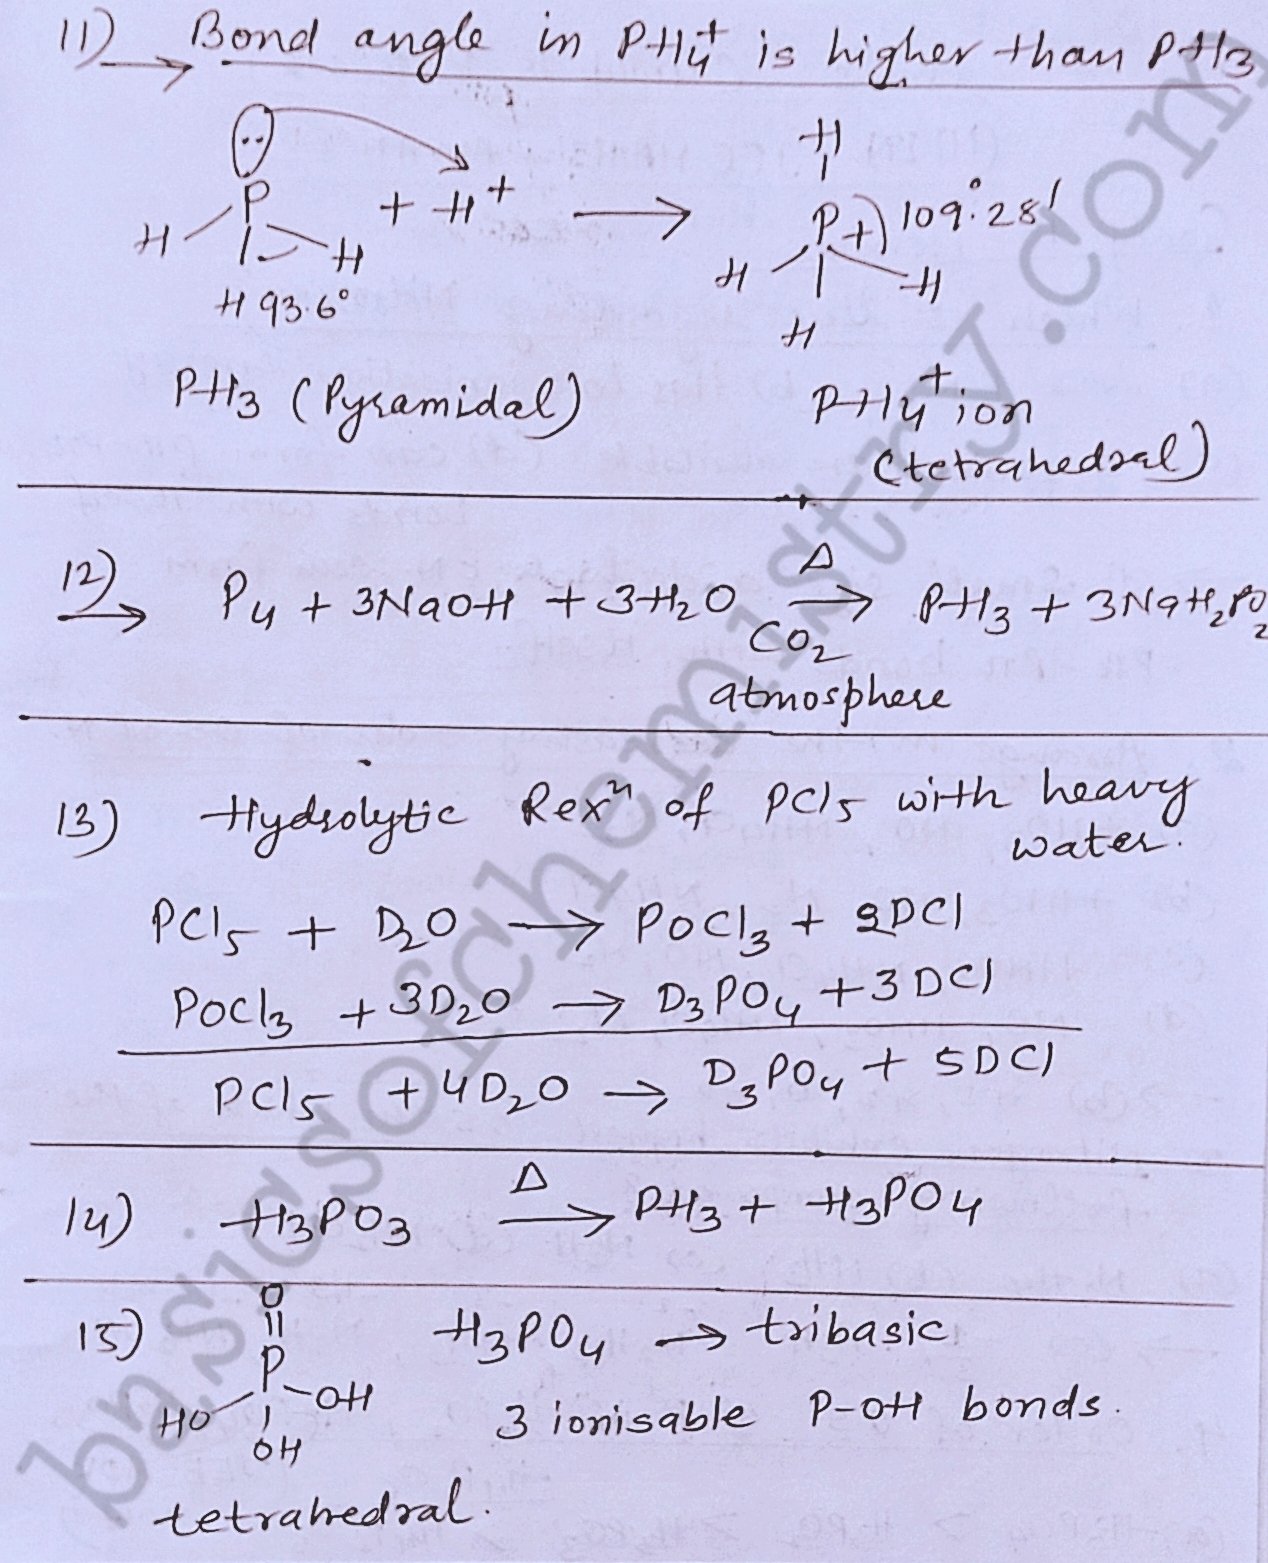 11) → Bond angle in PH4+ is higher than PH3
P + H+ → P+ 109°28'
H H H 93.6°
H H H H
PH3 (Pyramidal) PH4+ ion
(tetrahedral)
12) → P4 + 3NaOH + 3H2O Δ → PH3 + 3NaH2PO2
CO2
atmosphere
13) Hydrolytic Rexn of PCl5 with heavy
water.
PCl5 + D2O → POCl3 + 2DCl
POCl3 + 3D2O → D3PO4 + 3DCl
PCl5 + 4D2O → D3PO4 + 5DCl
14) H3PO3 Δ → PH3 + H3PO4
15) O = P OH HO OH H3PO4 → tribasic
3 ionisable P-OH bonds.
tetrahedral.
basicsofchemistry.com